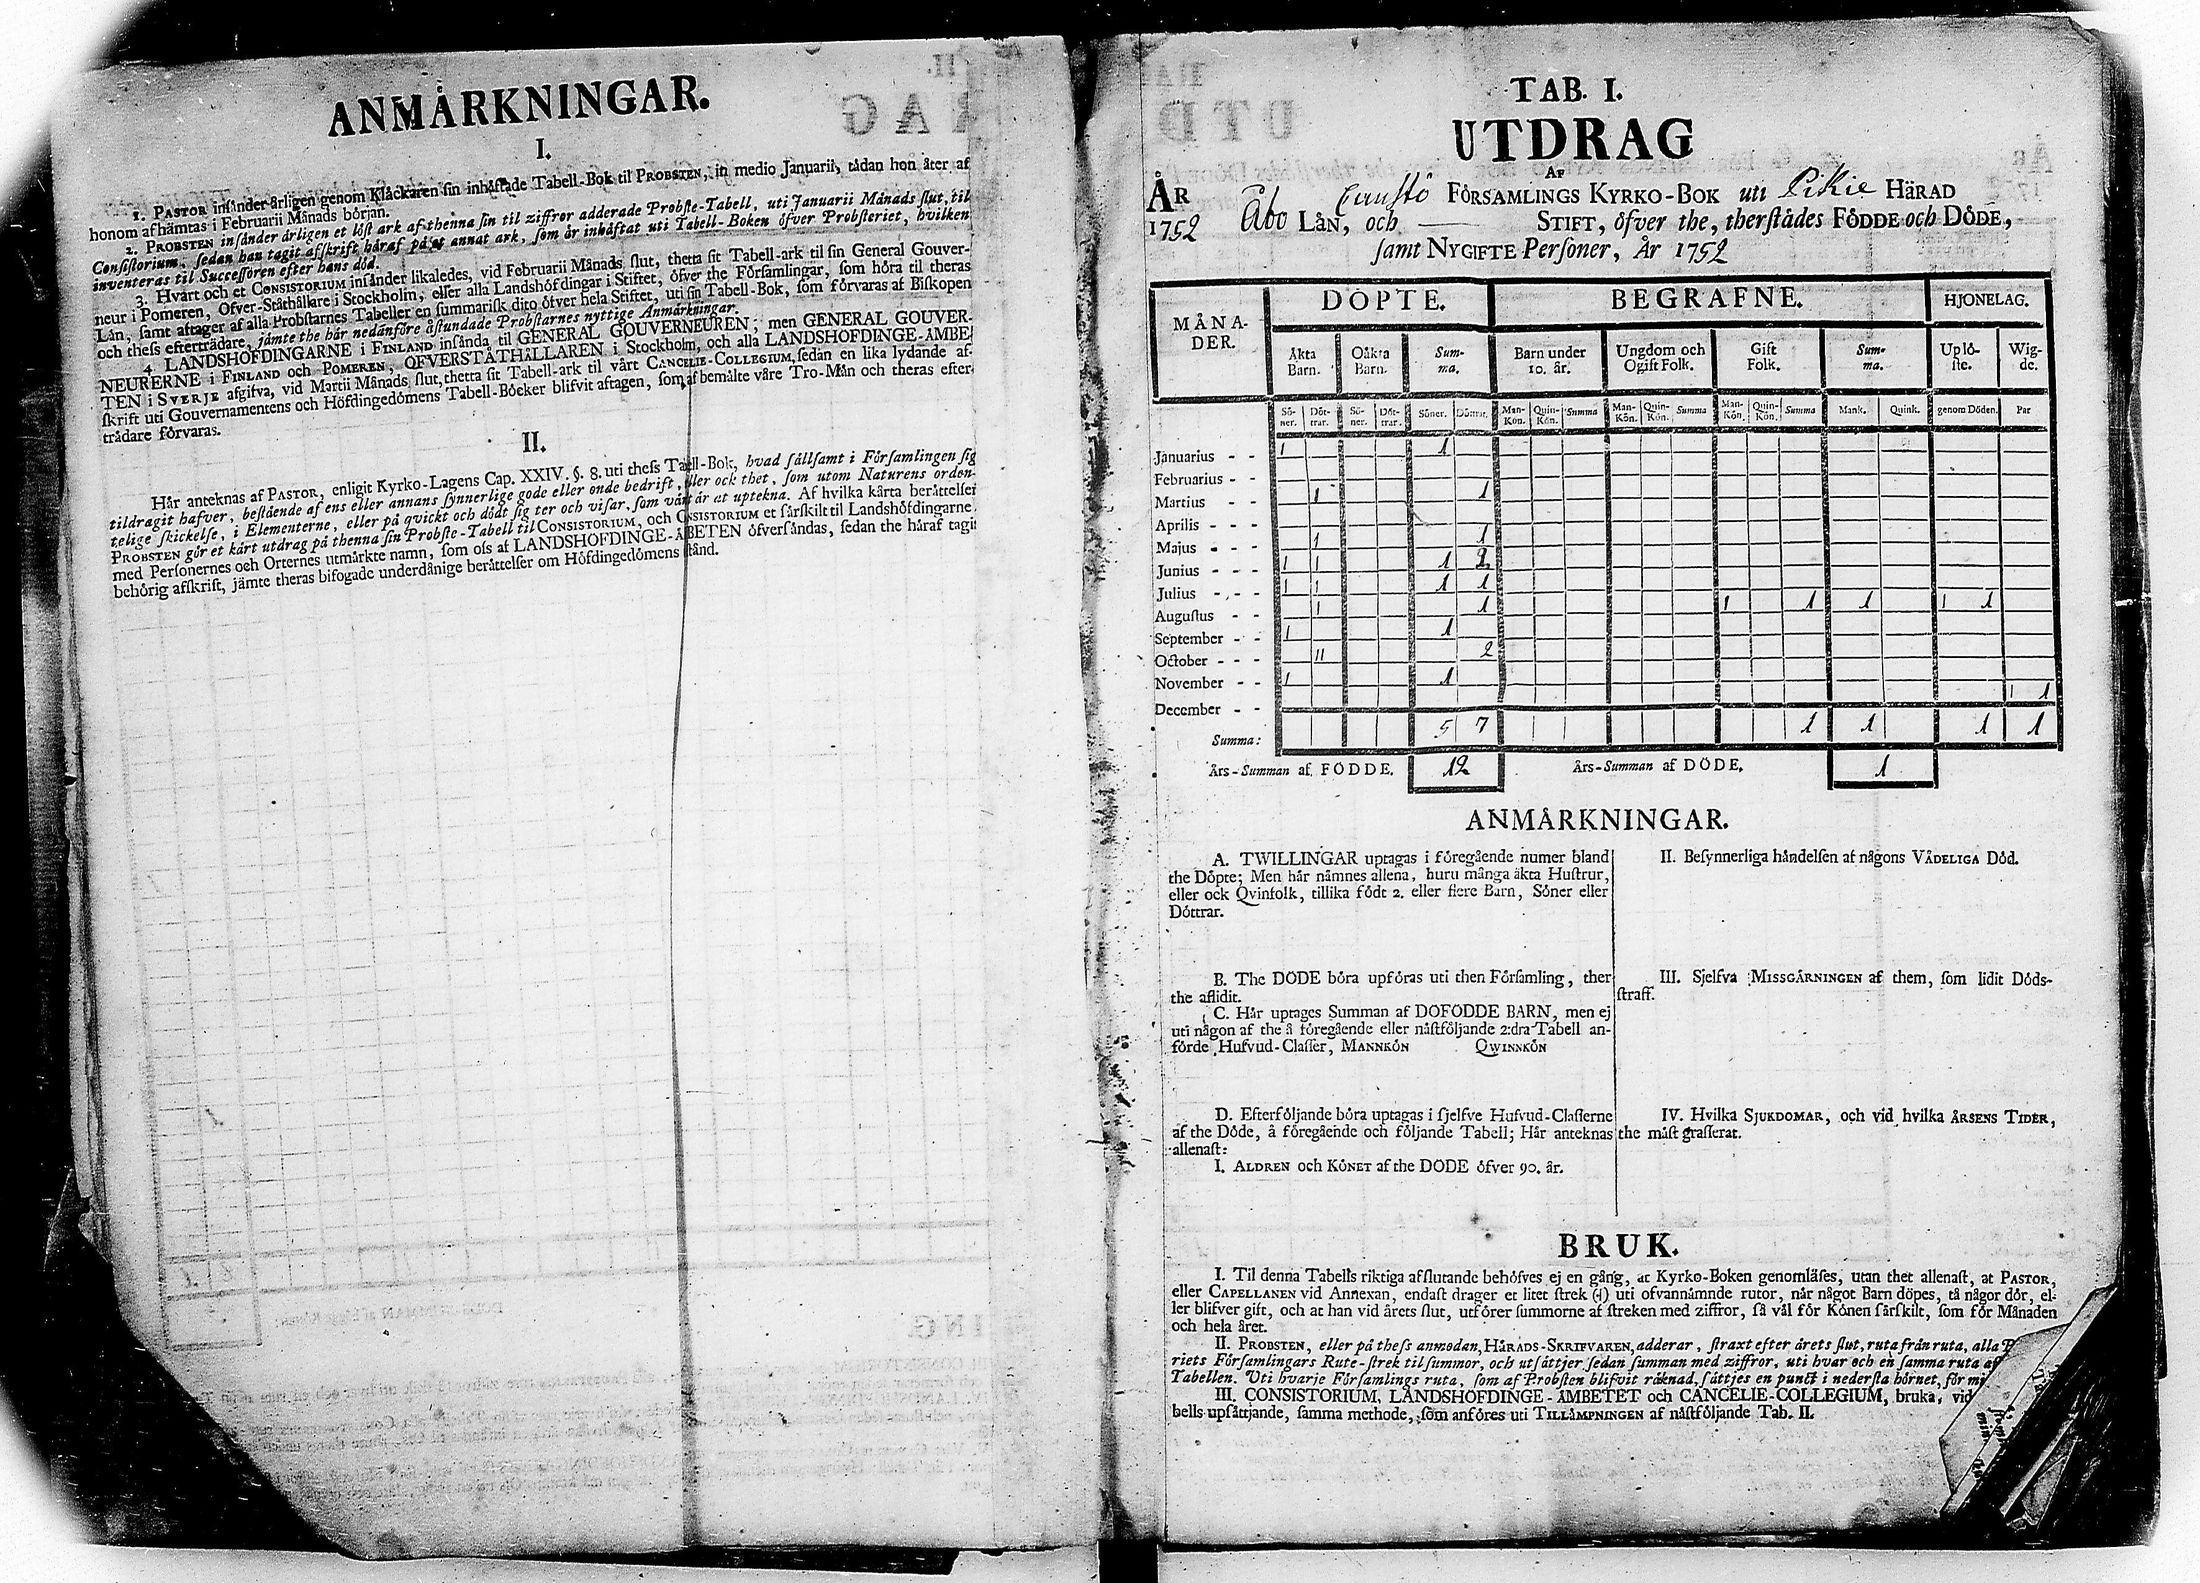 ANMÅRKNINGAR.
I.
1. PASTOR insånder årligen genom Klåckaren sin inhåftade Tabell-Bok til PROBSTEN, in medio Januarii, tådan hon åter af
honom afhämtas i Februarii Månads början.
2. PROBSTEN insånder årligen et löst ark af thenna sin til ziffror adderade Probste-Tabell, uti Januarii Månads slut, til
Consistorium, sedan han tagit afskrift håraf på et annat ark, som år inhåftat uti Tabell-Boken öfver Probsteriet, hvilken
inventeras til Successoren efter hans död.
3. Hvart och et CONSISTORIUM insånder likaledes, vid Februarii Månads slut, thetta sit Tabell-ark til sin General Gouver-
neur i Pomeren, Öfver-Ståthållare i Stockholm, eller alla Landshöfdingar i Stiftet, öfver the Församlingar, som höra til theras
Lån, samt aftager af alla Probstarnes Tabeller en summarisk dito öfver hela Stiftet, uti sin Tabell-Bok, som förvaras af Biskopen
och thess efterträdare, jämte the hår nedanföre åstundade Probstarnes nyttige Anmårkningar.
4. LANDSHÖFDINGARNE i FINLAND insånda til GENERAL GOUVERNEUREN; men GENERAL GOUVER-
NEURERNE i FINLAND och POMEREN, ÖFVERSTÅTHÅLLAREN i Stockholm, och alla LANDSHÖFDINGE-ÅMBE-
TEN i SVERJE afgifva, vid Martii Månads slut, thetta sit Tabell-ark til vårt CANCELIE-COLLEGIUM, sedan en lika lydande af-
skrift uti Gouvernamentens och Höfdingedömens Tabell-Böcker blifvit aftagen, som af bemålte våre Tro-Mån och theras efter-
trädare förvaras.
II.
Hår anteknas af PASTOR, enligit Kyrko-Lagens Cap. XXIV. §. 8. uti thess Tabell-Bok, hvad sållsamt i Församlingen sig
tildragit hafver, bestående af ens eller annans synnerlige gode eller onde bedrift, eller ock thet, som utom Naturens orden-
telige skickelse, i Elementerne, eller på qvickt och dödt sig ter och visar, som vårt år at uptekna. Af hvilka kårta beråttelser
PROBSTEN gör et kårt utdrag på thenna sin Probste-Tabell til CONSISTORIUM, och CONSISTORIUM et sårskilt til Landshöfdingarne,
med Personernes och Orternes utmårkte namn, som oss af LANDSHÖFDINGE-ÅMBETEN öfversåndas, sedan the håraf tagit
behörig afskrift, jämte theras bifogade underdånige beråttelser om Höfdingedömens stånd.
TAB. I.
UTDRAG
AF
ÅR FÖRSAMLINGS KYRKO-BOK uti Pikie HÄRAD
1752 Åbo LÅN, och STIFT, öfver the, therstådes FÖDDE och DÖDE,
samt NYGIFTE Personer, År 1752
MÅNA-DER. DÖPTE. BEGRAFNE. HJONELAG.
Åkta Barn. Oåkta Barn. Sum-ma. Barn under 10. år. Ungdom och Ogift Folk. Gift Folk. Sum-ma. Uplö-ste. Wig-de.
Sö-ner. Döt-trar. Sö-ner. Döt-trar. Söner. Döttrar. Man-Kön. Quin-Kön. Summa Man-Kön. Quin-Kön. Summa Man-Kön. Quin-Kön. Summa Mank. Quink. genom Döden. Par
Januarius - - 1 1
Februarius - -
Martius - - 1 1
Aprilis - - -
Majus - - - 1 1
Junius - - - 1 1 1 1
Julius - - - 1 1 1 1
Augustus - - 1 1 1 1 1 1 1
September - - 1 1
October - - - 11 2
November - - 1 1
December - - 1 1
Summa: 5 7 1 1 1 1
Års-Summan af FÖDDE. 12 Års-Summan af DÖDE. 1
ANMÅRKNINGAR.
A. TWILLINGAR uptagas i föregående numer bland
the Döpte; Men hår nåmnes allena, huru många åkta Hustrur,
eller ock Qvinfolk, tillika födt 2. eller flere Barn, Söner eller
Döttrar.
B. The DÖDE böra upföras uti then Församling, ther
the aflidit.
C. Hår uptages Summan af DÖFÖDDE BARN, men ej
uti någon af the å föregående eller nåstföljande 2:dra Tabell an-
förde Hufvud-Classer, MANNKÖN QWINNKÖN
D. Efterföljande böra uptagas i sjelfve Hufvud-Classerne
af the Döde, å föregående och följande Tabell; Hår anteknas
allenast:
I. ÅLDREN och KÖNET af the DÖDE öfver 90. år.
II. Besynnerliga håndelsen af någons VÅDELIGA Död.
III. Sjelfva MISSGÅRNINGEN af them, som lidit Döds-
straff.
IV. Hvilka SJUKDOMAR, och vid hvilka ÅRSENS TIDER,
the måst grasserat.
BRUK.
I. Til denna Tabells riktiga afslutande behöfves ej en gång, at Kyrko-Boken genomläses, utan thet allenast, at PASTOR,
eller CAPELLANEN vid Annexan, endast drager et litet strek (1) uti ofvannåmnde rutor, når något Barn döpes, tå någor dör, el-
ler blifver gift, och at han vid årets slut, utförer summorne af streken med ziffror, så vål för Könen sårskilt, som för Månaden
och hela året.
II. PROBSTEN, eller på thess anmodan, HÅRADS-SKRIFVAREN, adderar, straxt efter årets slut, ruta från ruta, alla
riets Församlingars Rute-strek til summor, och utsåttjer sedan summan med ziffror, uti hvar och en samma ruta af
Tabellen. Uti hvarje Församlings ruta, som af Probsten blifvit råknad, såttjes en punct i nedersta hörnet, för
III. CONSISTORIUM, LANDSHÖFDINGE-ÅMBETET och CANCELIE-COLLEGIUM, bruka, vid
bells upsåttjande, samma methode, som anföres uti TILLÅMPNINGEN af nåstföljande Tab. II.